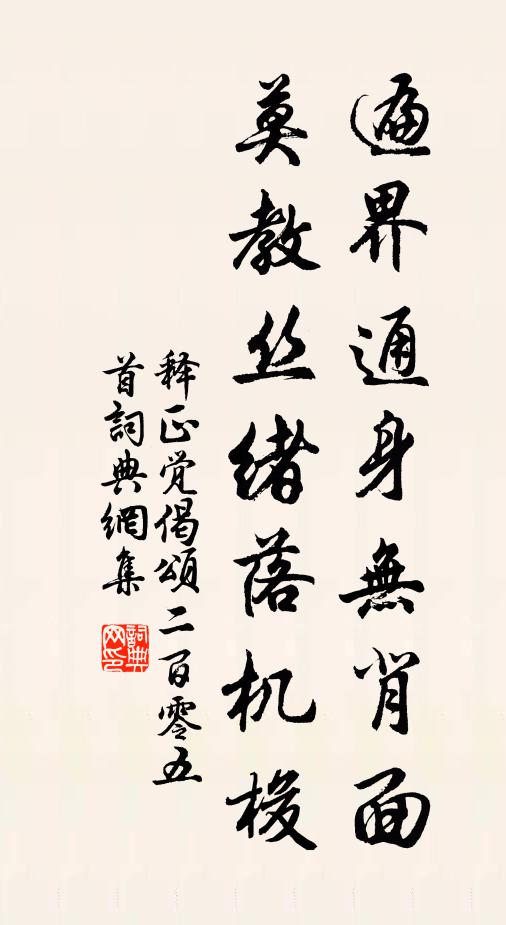 遍界通身無背面
莫教丝緒落机梭
释正觉偈頌二百零五
首詞典網集
詞典网印